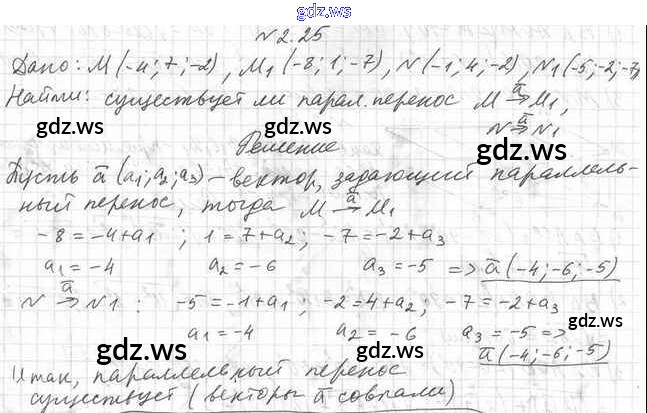 gdz.ws
N 2.25
Дано: M(-4; 7; -2), M₁(-8; 1; -7), N(-1; 4; -2), N₁(-5; -2; -7)
Найти: существует ли парал. перенос M →ā M₁,
gdz.ws N →ā N₁
Решение gdz.ws
Пусть ā (a₁; a₂; a₃) – вектор, задающий параллель-
ный перенос, тогда M →ā M₁
-8 = -4 + a₁ ; 1 = 7 + a₂; -7 = -2 + a₃
a₁ = -4 a₂ = -6 a₃ = -5 => ā(-4; -6; -5)
N →ā N₁ : -5 = -1 + a₁; -2 = 4 + a₂; -7 = -2 + a₃
gdz.ws
a₁ = -4 a₂ = -6 a₃ = -5 =>
gdz.ws gdz.ws ā(-4; -6; -5)
Итак, параллельный перенос
существует (векторы ā совпали)
gdz.ws